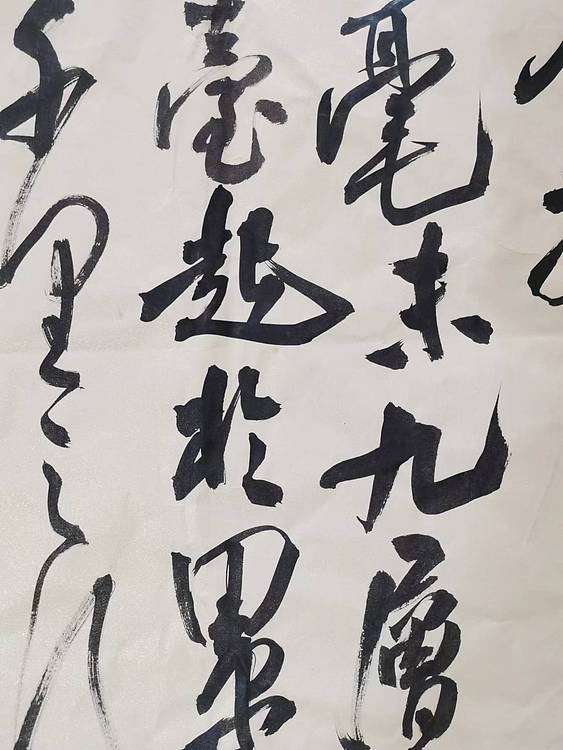 毫末九層
臺起於累
千里之行